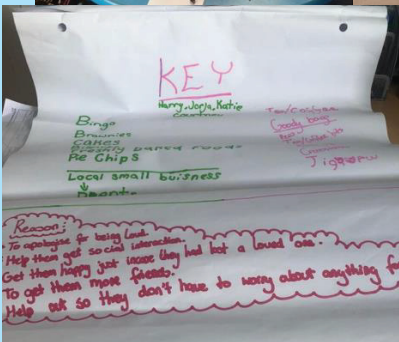 KEY
Harry, Jorja, Katie
Bingo
Brownies
Cakes
Freshly baked foods
Pie Chips
Local small buisness
Goody bags
Jigsaw
Reason:
To apologise for being loud.
Help them get social interaction.
Get them happy just incase they had lost a loved one.
To get them more friends.
Help out so they don't have to worry about anything